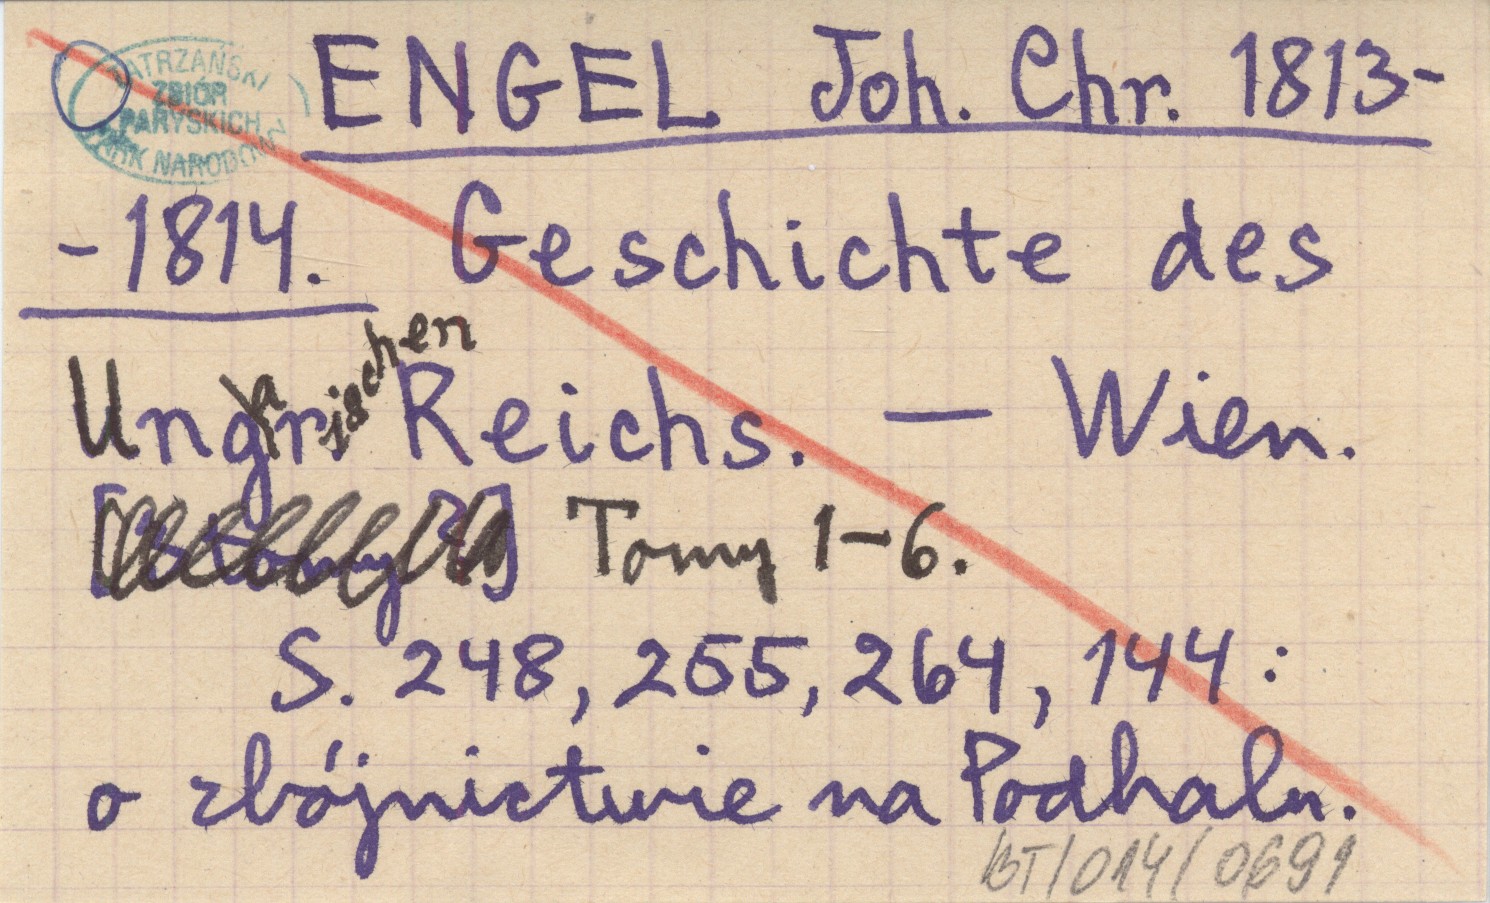 TATRZAŃSKI
ZBIÓR
PARYSKICH
PARK NARODOWY
ENGEL Joh. Chr. 1813-
-1814. Geschichte des
Ungarischen Reichs. — Wien.
Tomy 1-6.
S. 248, 255, 264, 144:
o zbójnictwie na Podhalu.
BT/014/0691